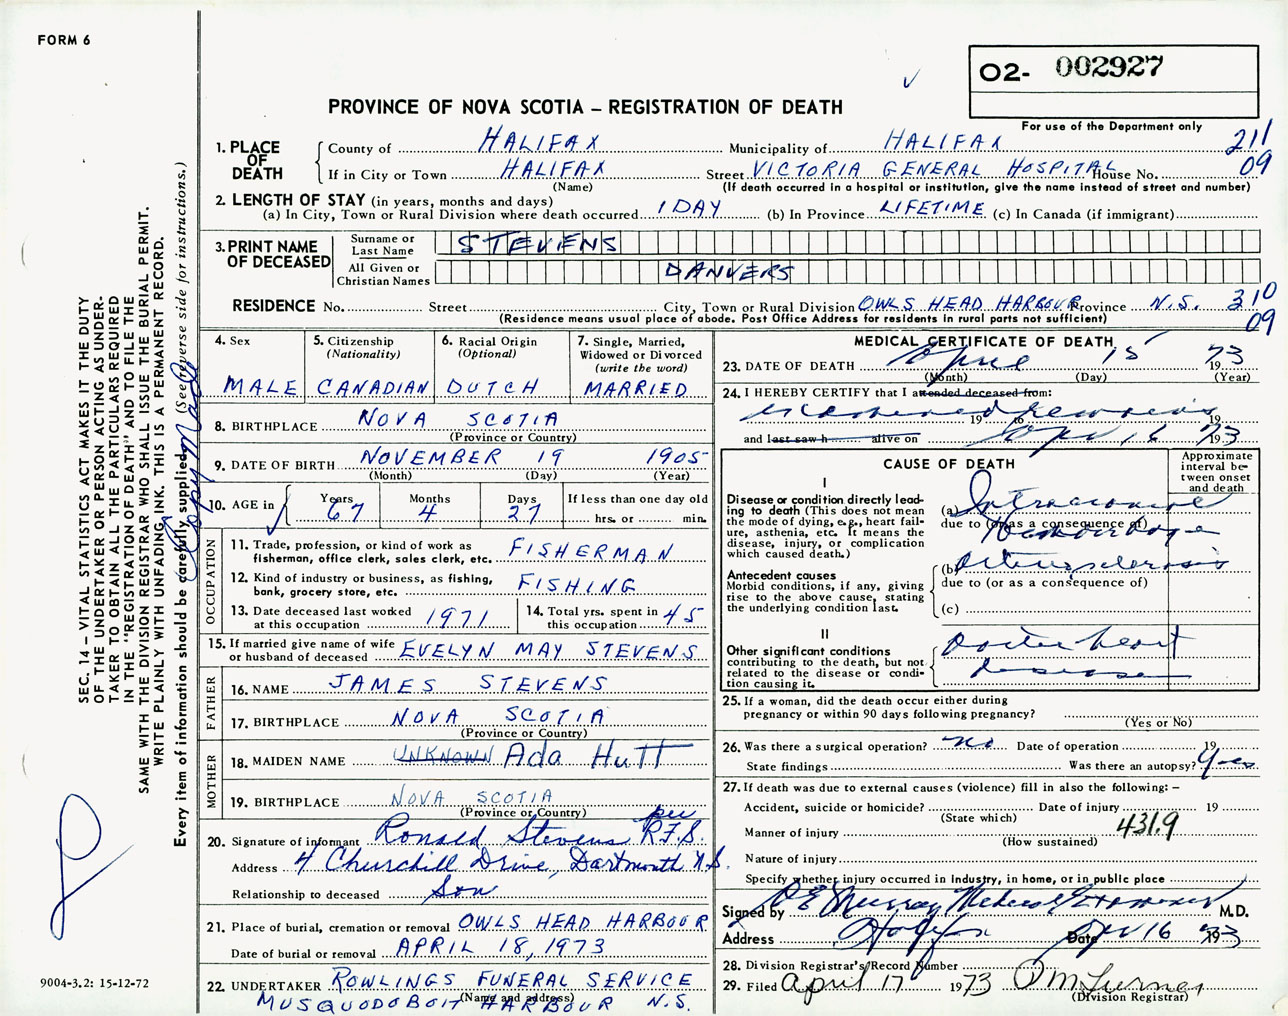 FORM 6
O2- 002927
PROVINCE OF NOVA SCOTIA – REGISTRATION OF DEATH
For use of the Department only
1. PLACE OF DEATH
County of HALIFAX Municipality of HALIFAX 211
If in City or Town HALIFAX Street VICTORIA GENERAL HOSPITAL House No. 09
(Name) (If death occurred in a hospital or institution, give the name instead of street and number)
2. LENGTH OF STAY (in years, months and days)
(a) In City, Town or Rural Division where death occurred 1 DAY (b) In Province LIFETIME (c) In Canada (if immigrant)
3. PRINT NAME OF DECEASED
Surname or Last Name STEVENS
All Given or Christian Names DANVERS
RESIDENCE No. Street City, Town or Rural Division OWLS HEAD HARBOUR Province N.S. 310
(Residence means usual place of abode. Post Office Address for residents in rural parts not sufficient) 09
4. Sex MALE
5. Citizenship (Nationality) CANADIAN
6. Racial Origin (Optional) DUTCH
7. Single, Married, Widowed or Divorced (write the word) MARRIED
8. BIRTHPLACE NOVA SCOTIA
(Province or Country)
9. DATE OF BIRTH NOVEMBER 19 1905
(Month) (Day) (Year)
10. AGE in Years 67 Months 4 Days 27 If less than one day old hrs. or min.
OCCUPATION
11. Trade, profession, or kind of work as fisherman, office clerk, sales clerk, etc. FISHERMAN
12. Kind of industry or business, as fishing, bank, grocery store, etc. FISHING
13. Date deceased last worked at this occupation 1971
14. Total yrs. spent in this occupation 45
15. If married give name of wife or husband of deceased EVELYN MAY STEVENS
FATHER
16. NAME JAMES STEVENS
17. BIRTHPLACE NOVA SCOTIA
(Province or Country)
MOTHER
18. MAIDEN NAME UNKNOWN Ada Hutt
19. BIRTHPLACE NOVA SCOTIA
(Province or Country)
20. Signature of informant Ronald Stevens per R.F.S.
Address 4 Churchill Drive, Dartmouth N.S.
Relationship to deceased Son
21. Place of burial, cremation or removal OWLS HEAD HARBOUR
Date of burial or removal APRIL 18, 1973
22. UNDERTAKER ROWLINGS FUNERAL SERVICE
(Name and address)
MUSQUODOBOIT HARBOUR N.S.
MEDICAL CERTIFICATE OF DEATH
23. DATE OF DEATH April 15 1973
(Month) (Day) (Year)
24. I HEREBY CERTIFY that I attended deceased from:
19 19
and last saw h alive on Apr 16 1973
CAUSE OF DEATH
Approximate interval between onset and death
I
Disease or condition directly leading to death (This does not mean the mode of dying, e.g., heart failure, asthenia, etc. It means the disease, injury, or complication which caused death.)
(a) Intracranial
due to (or as a consequence of)
Hemorrhage
Antecedent causes
Morbid conditions, if any, giving rise to the above cause, stating the underlying condition last.
(b) Arteriosclerosis
due to (or as a consequence of)
(c)
II
Other significant conditions contributing to the death, but not related to the disease or condition causing it.
heart
disease
25. If a woman, did the death occur either during pregnancy or within 90 days following pregnancy?
(Yes or No)
26. Was there a surgical operation? no Date of operation 19
State findings Was there an autopsy? Yes
27. If death was due to external causes (violence) fill in also the following: –
Accident, suicide or homicide? Date of injury 19
(State which)
Manner of injury 431.9
(How sustained)
Nature of injury
Specify whether injury occurred in industry, in home, or in public place
Signed by Murray Medical Examiner M.D.
Address Hfx Date Apr 16 1973
28. Division Registrar's Record Number
29. Filed April 17 1973
(Division Registrar)
SEC. 14 – VITAL STATISTICS ACT MAKES IT THE DUTY
OF THE UNDERTAKER OR PERSON ACTING AS UNDER-
TAKER TO OBTAIN ALL THE PARTICULARS REQUIRED
IN THE "REGISTRATION OF DEATH" AND TO FILE THE
SAME WITH THE DIVISION REGISTRAR WHO SHALL ISSUE THE BURIAL PERMIT.
WRITE PLAINLY WITH UNFADING INK. THIS IS A PERMANENT RECORD.
Every item of information should be carefully supplied. (See reverse side for instructions.)
Copy Made
9004-3.2: 15-12-72